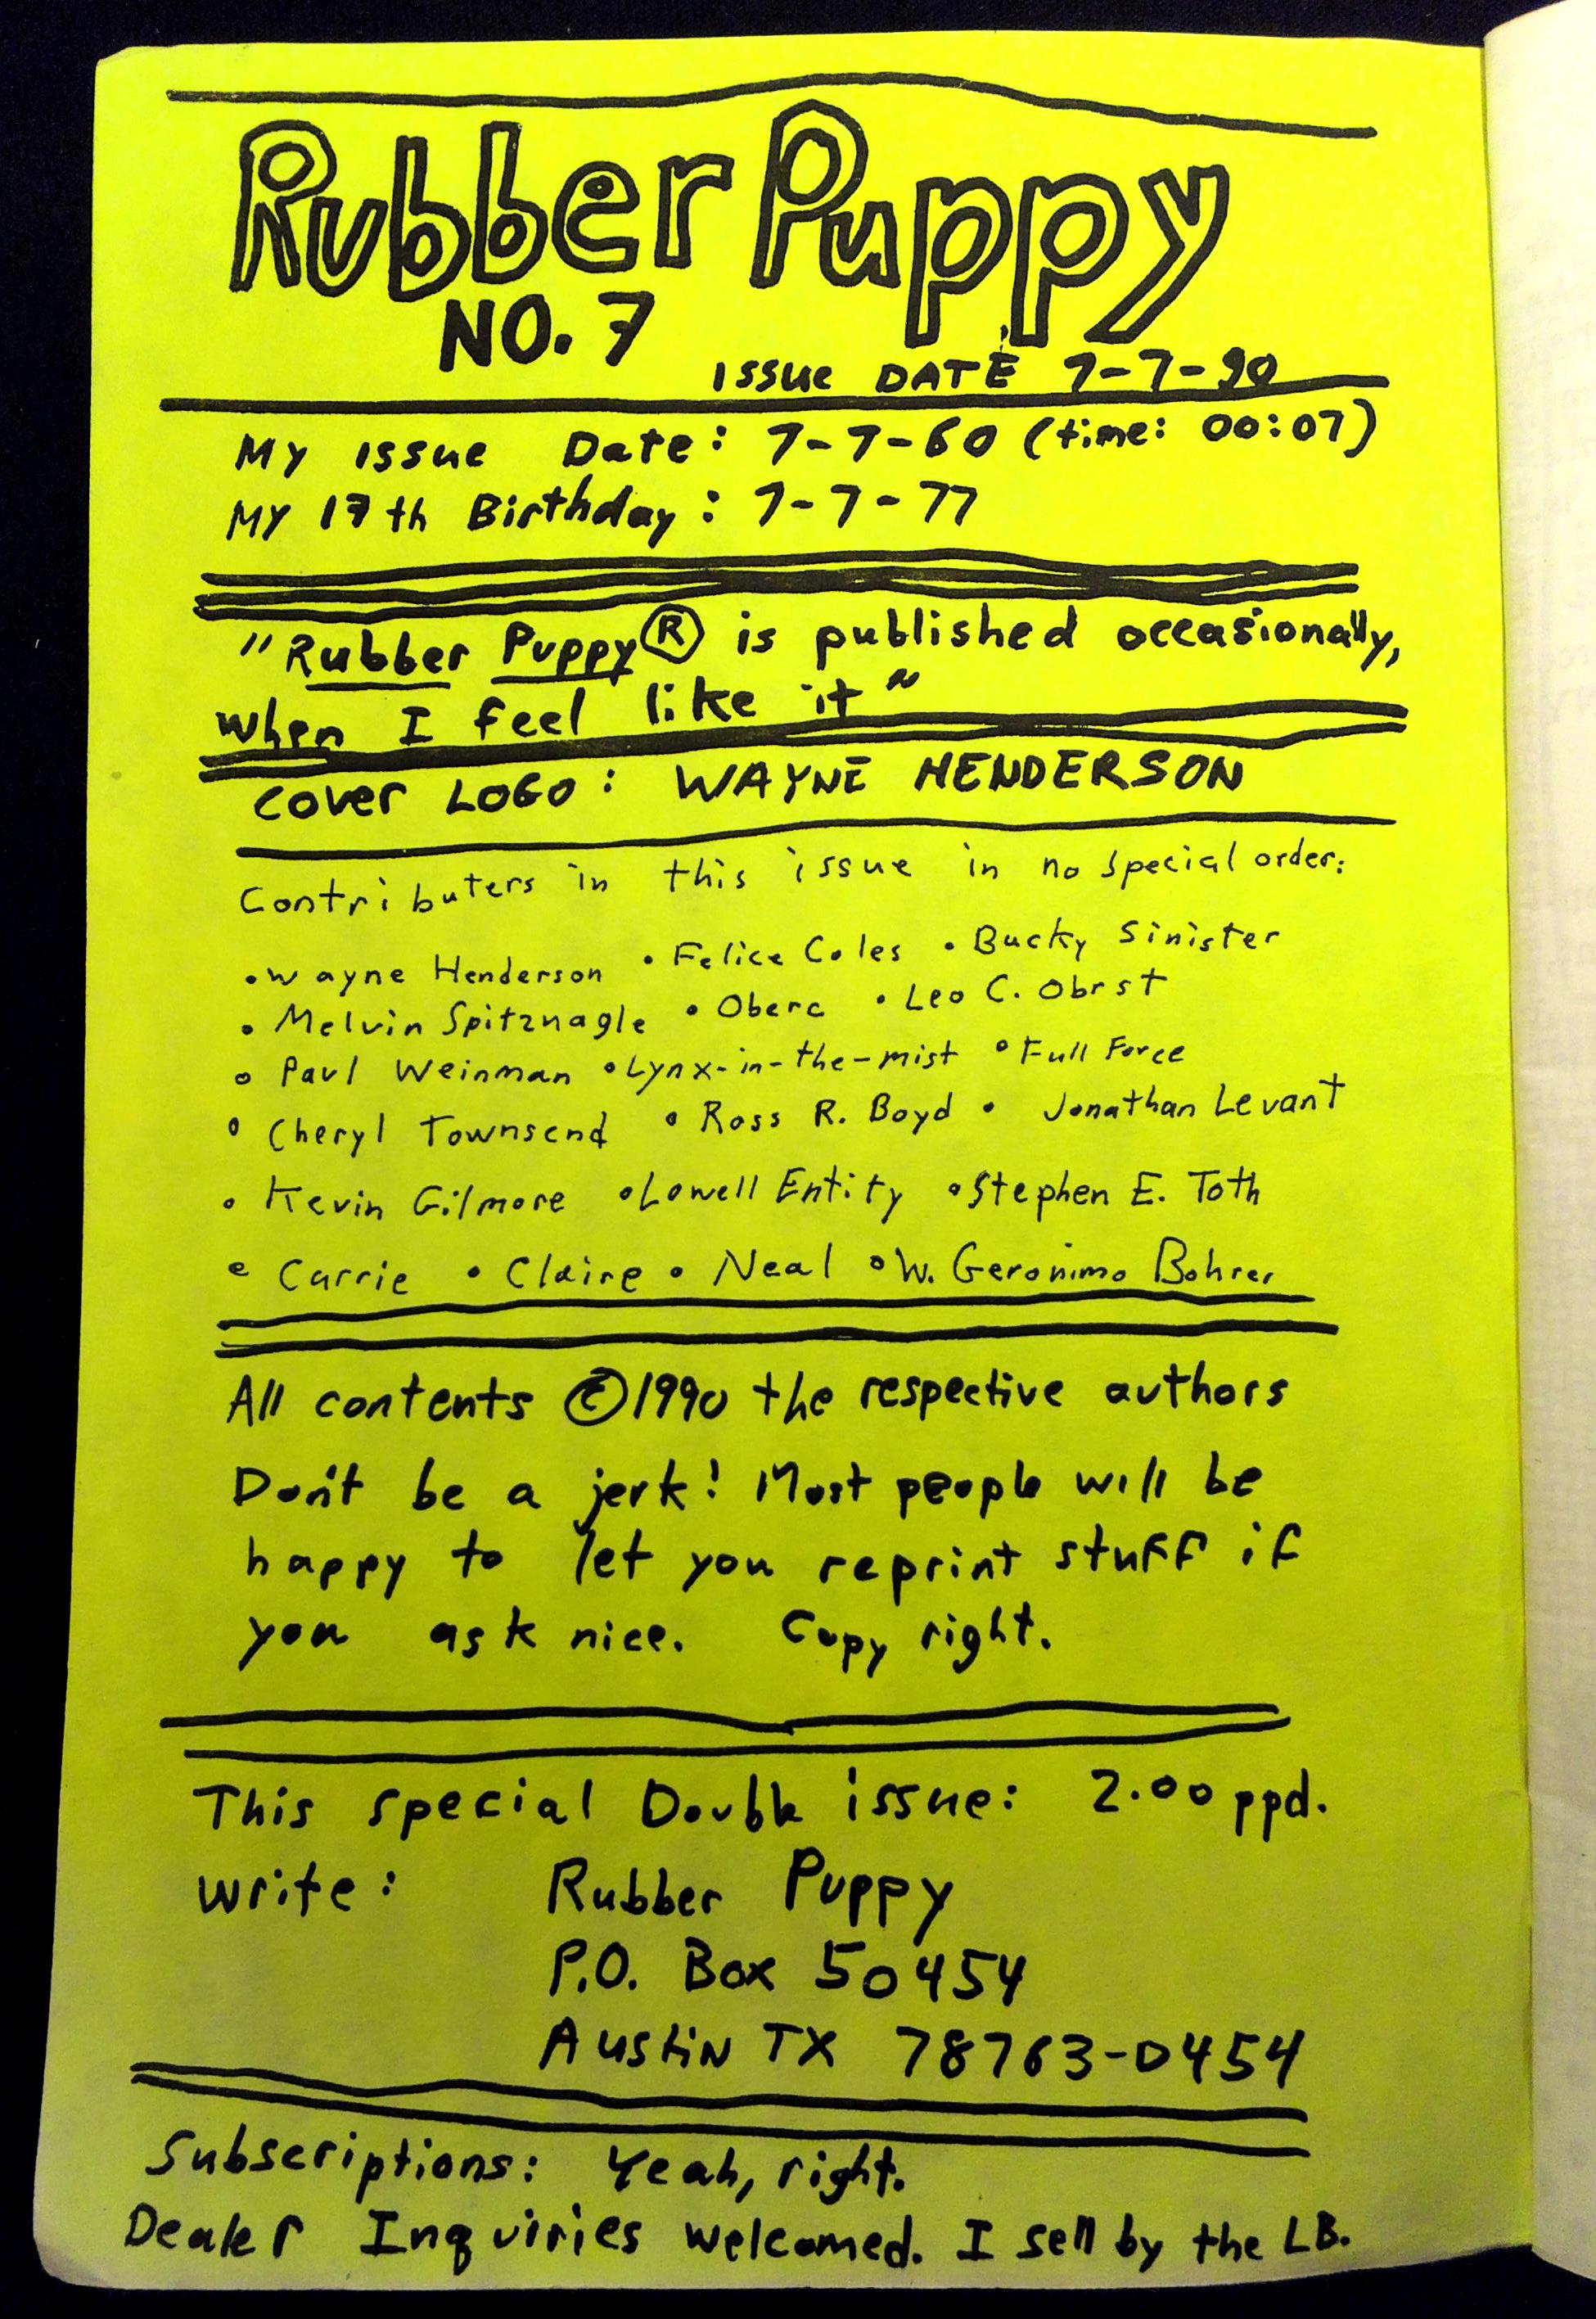 Rubber Puppy
NO. 7
ISSUE DATE 7-7-90
My ISSUE Date: 7-7-60 (time: 00:07)
MY 17th Birthday: 7-7-77
"Rubber Puppy® is published occasionally,
when I feel like it"
Cover LOGO: WAYNE HENDERSON
Contributers in this issue in no special order:
• Wayne Henderson • Felice Coles • Bucky Sinister
• Melvin Spitznagle • Oberc • Leo C. Obrst
• Paul Weinman • Lynx-in-the-mist • Full Force
• Cheryl Townsend • Ross R. Boyd • Jonathan Levant
• Kevin Gilmore • Lowell Entity • Stephen E. Toth
• Carrie • Claire • Neal • W. Geronimo Bohrer
All contents ©1990 the respective authors
Don't be a jerk! Most people will be
happy to let you reprint stuff if
you ask nice. Copy right.
This special Double issue: 2.00 ppd.
write: Rubber Puppy
P.O. Box 50454
Austin TX 78763-0454
Subscriptions: Yeah, right.
Dealer Inquiries welcomed. I sell by the LB.